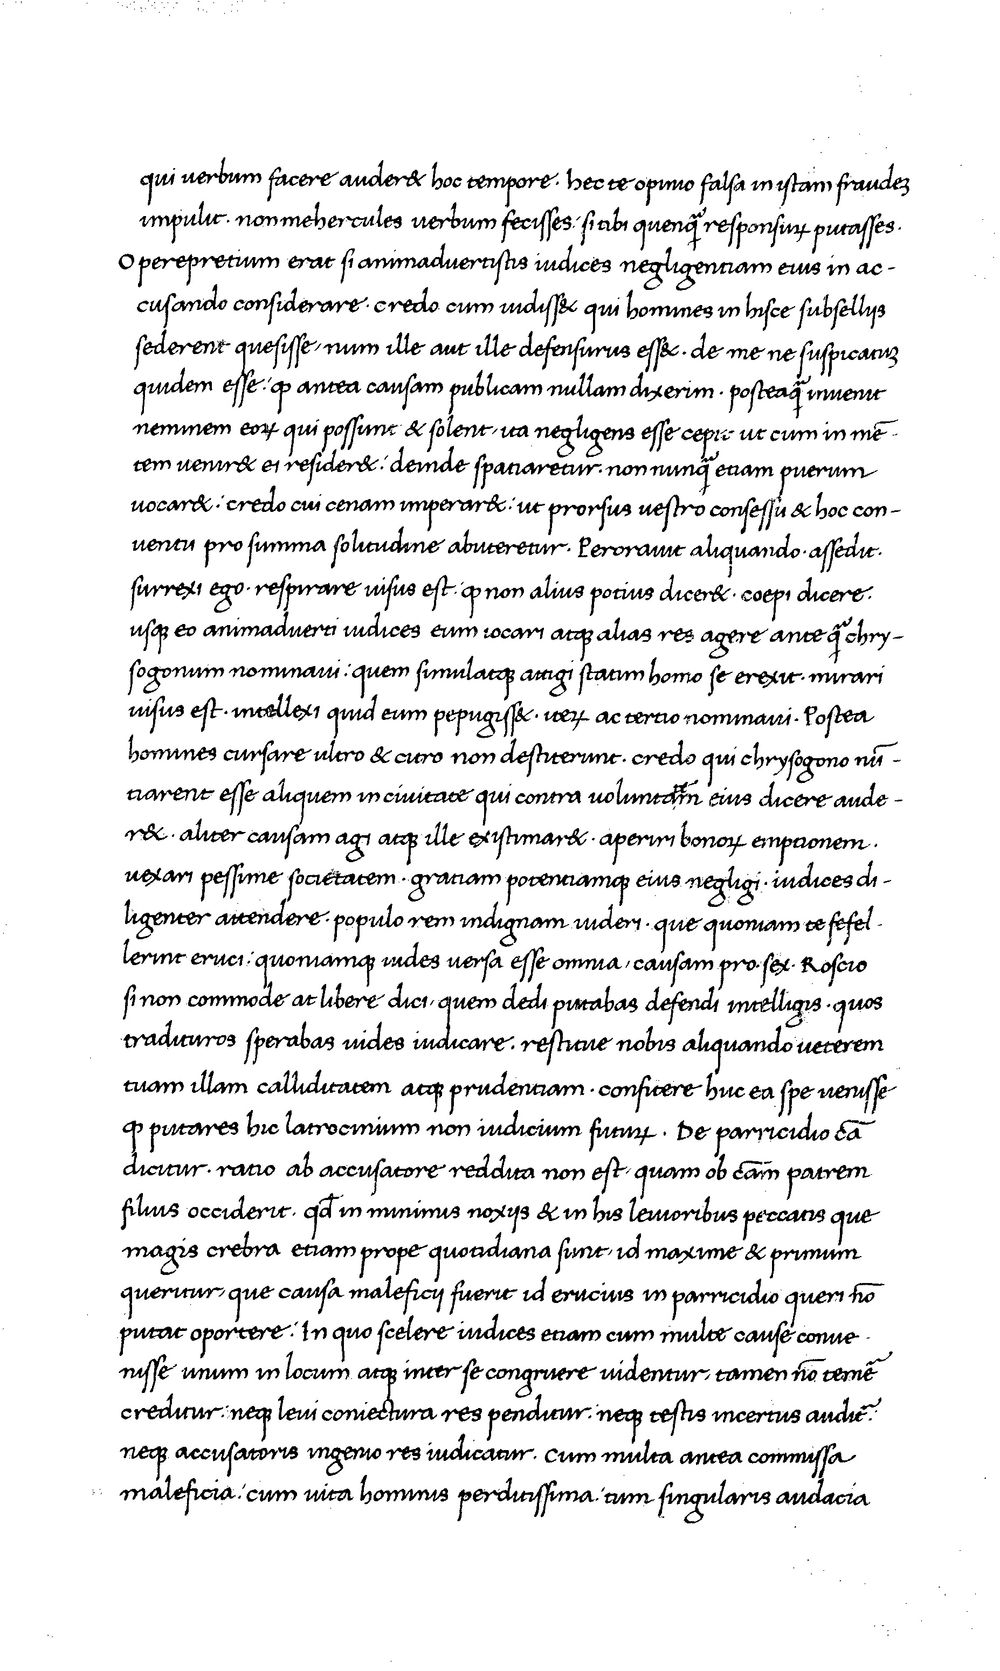 qui verbum facere auder& hoc tempore· hec te opinio falsa in istam fraudeꝫ
impulit· non mehercules verbum fecisses· si tibi quenq̃ responsuꝝ putasses·
Opereprecium erat si animadvertistis iudices negligentiam eius in ac-
cusando considerare· credo cum vidiss& qui homines in hisce subsellijs
sederent quesisse, num ille aut ille defensurus ess&· de me ne suspicatuꝫ
quidem esse: ꝙ antea causam publicam nullam dixerim· posteaq̃ invenit
neminem eoꝝ qui possunt & solent, ita negligens esse cepit ut cum in mē-
tem venir& ei resider&: deinde spatiaretur· non nunq̃ etiam puerum
vocar&: credo cui cenam imperar&: ut prorsus vestro consessu & hoc con-
ventu pro summa solitudine abuteretur· Peroravit aliquando· assedit·
surrexi ego· respirare visus est: ꝙ non alius potius dicer&· coepi dicere·
usqꝫ eo animadverti iudices eum iocari atqꝫ alias res agere ante q̃ chry-
sogonum nominavi: quem simulatqꝫ attigi statim homo se erexit· mirari
visus est· intellexi quid eum pepugiss&· iteꝝ ac tertio nominavi· Postea
homines cursare ultro & citro non destiterunt· credo qui chrysogono nū-
tiarent esse aliquem in civitate qui contra voluntat̄m eius dicere aude-
r&· aliter causam agi atqꝫ ille existimar&· aperiri bonoꝝ emptionem·
vexari pessime societatem· gratiam potentiamqꝫ eius negligi· iudices di-
ligenter attendere· populo rem indignam videri· que quoniam te fefel-
lerint eruci: quoniamqꝫ vides versa esse omnia, causam pro·sex· Roscio
si non commode at libere dici, quem dedi putabas defendi intelligis· quos
tradituros sperabas vides iudicare· restitue nobis aliquando veterem
tuam illam calliditatem atqꝫ prudentiam· confitere huc ea spe venisse
ꝙ putares hic latrocinium non iudicium futuꝝ· De parricidio cā
dicitur· ratio ab accusatore reddita non est, quam ob cām patrem
filius occiderit· qd̄ in minimis noxijs & in his levioribus peccatis que
magis crebra etiam prope quotidiana sunt, id maxime & primum
queritur, que causa maleficij fuerit id erucius in parricidio queri nō
putat oportere: In quo scelere iudices etiam cum multe cause conve-
nisse unum in locum atqꝫ inter se congruere videntur, tamen nō temē
creditur: neqꝫ levi coniectura res penditur: neqꝫ testis incertus audit̃:
neqꝫ accusatoris ingenio res iudicatur· Cum multa antea commissa
maleficia: cum vita hominis perditissima: tum singularis audacia